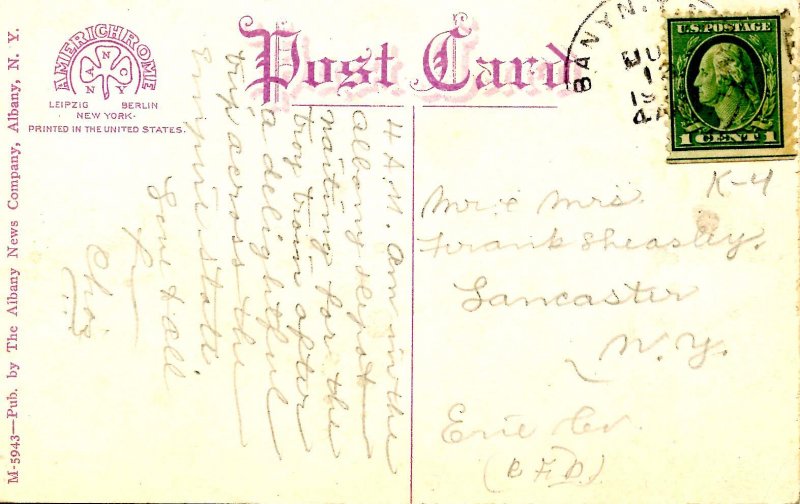 M-5943—Pub. by The Albany News Company, Albany, N. Y.
AMERICHROME
ANCNY
LEIPZIG BERLIN
NEW YORK
PRINTED IN THE UNITED STATES.
Post Card
ALBANY, N.Y.
U.S. POSTAGE
1 CENT 1
K-4
4 A.M. Am in the
albany depot
waiting for the
troy train after
a delightful
trip across the
Empire state
Love to all
Chas
Mr & Mrs.
Frank Sheasley,
Lancaster
N.Y.
Erie Co.
(R.F.D.)